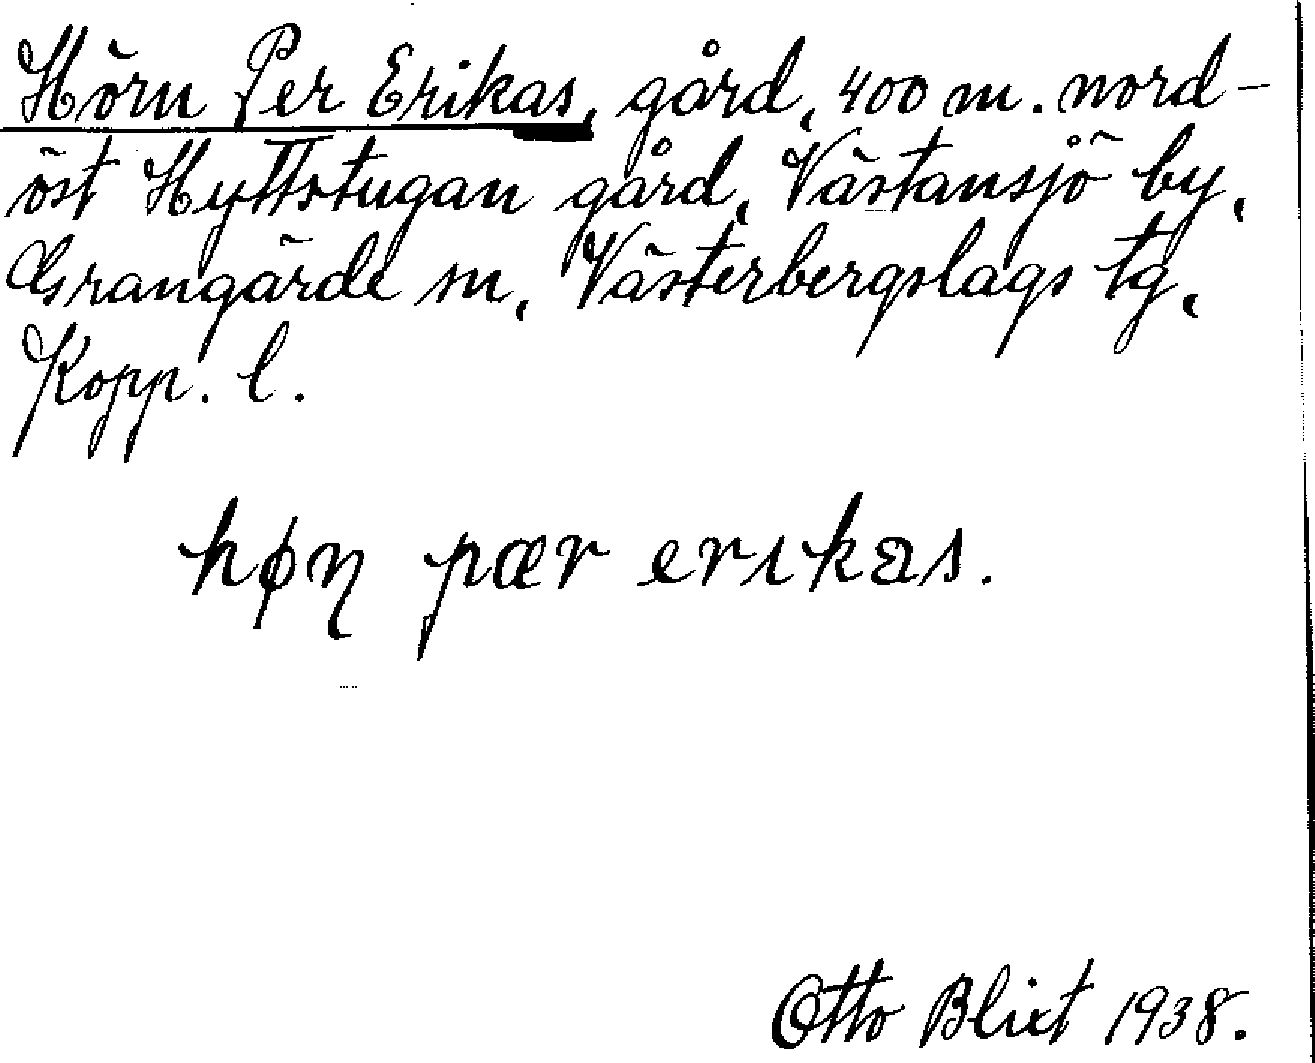 Hörn Per Erikas, gård, 400 m. nord-
öst Hyttstugan gård, Västansjö by,
Grangärde sn, Västerbergslags tg,
Kopp. l.
høɳ pær erɩkas.
Otto Blixt 1938.